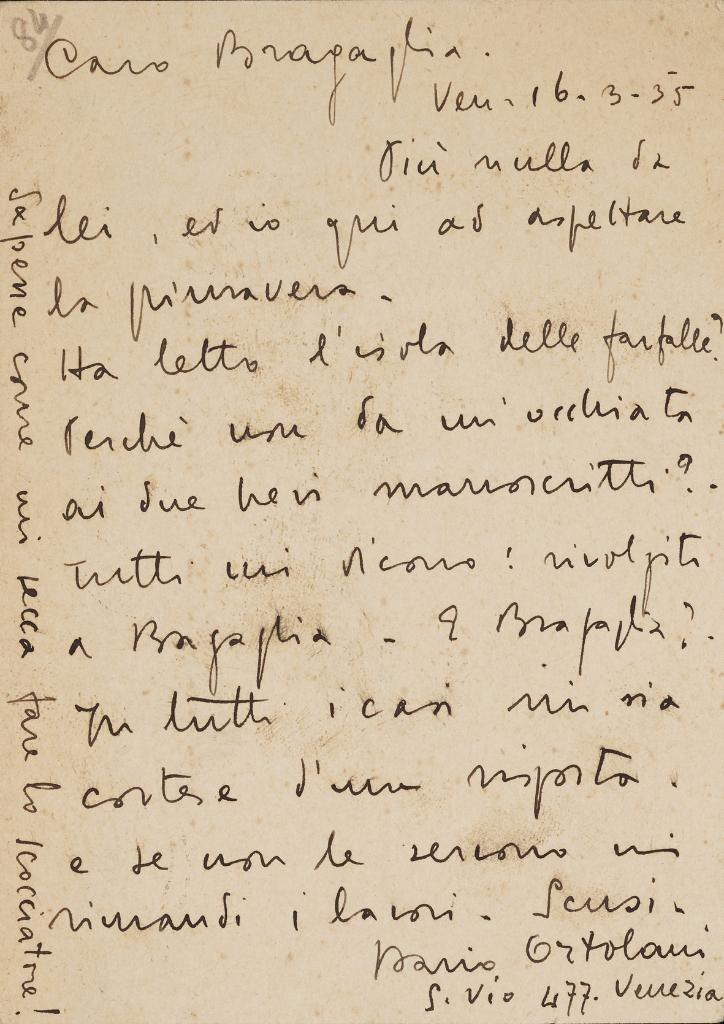 84
Caro Bragaglia.
Ven. 16-3-35
Più nulla da
lei, ed io qui ad aspettare
la primavera.
Ha letto l'isola delle farfalle?
Perchè non da un'occhiata
ai due brevi manoscritti?.
Tutti mi dicono: rivolgiti
a Bragaglia - E Bragaglia?.
In tutti i casi mi sia
cortese d'una risposta.
e se non le servono mi
rimandi i lavori. Scusi.
Dario Ortolani
S. Vio 477. Venezia
Sapesse come mi secca fare lo scocciatore!